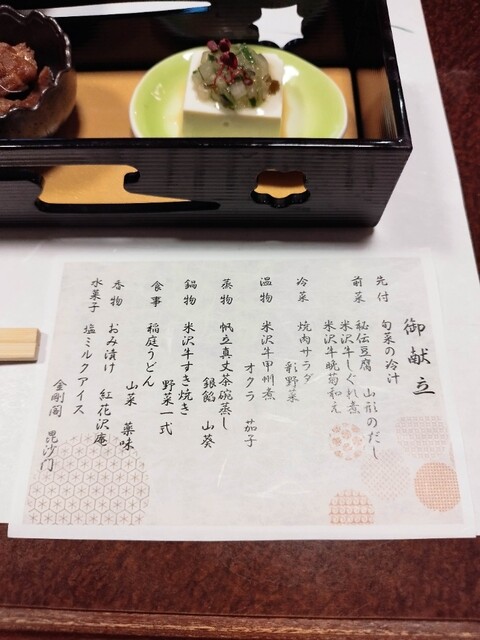 御献立
先付 旬菜の冷汁
前菜 秘伝豆腐 山形のだし
米沢牛しぐれ煮
米沢牛晩菊和え
冷菜 焼肉サラダ
彩野菜
温物 米沢牛甲州煮
オクラ 茄子
蒸物 帆立真丈茶碗蒸し
銀餡 山葵
鍋物 米沢牛すき焼き
野菜一式
食事 稲庭うどん
山菜 薬味
香物 おみ漬け 紅花沢庵
水菓子 塩ミルクアイス
金剛閣 毘沙門